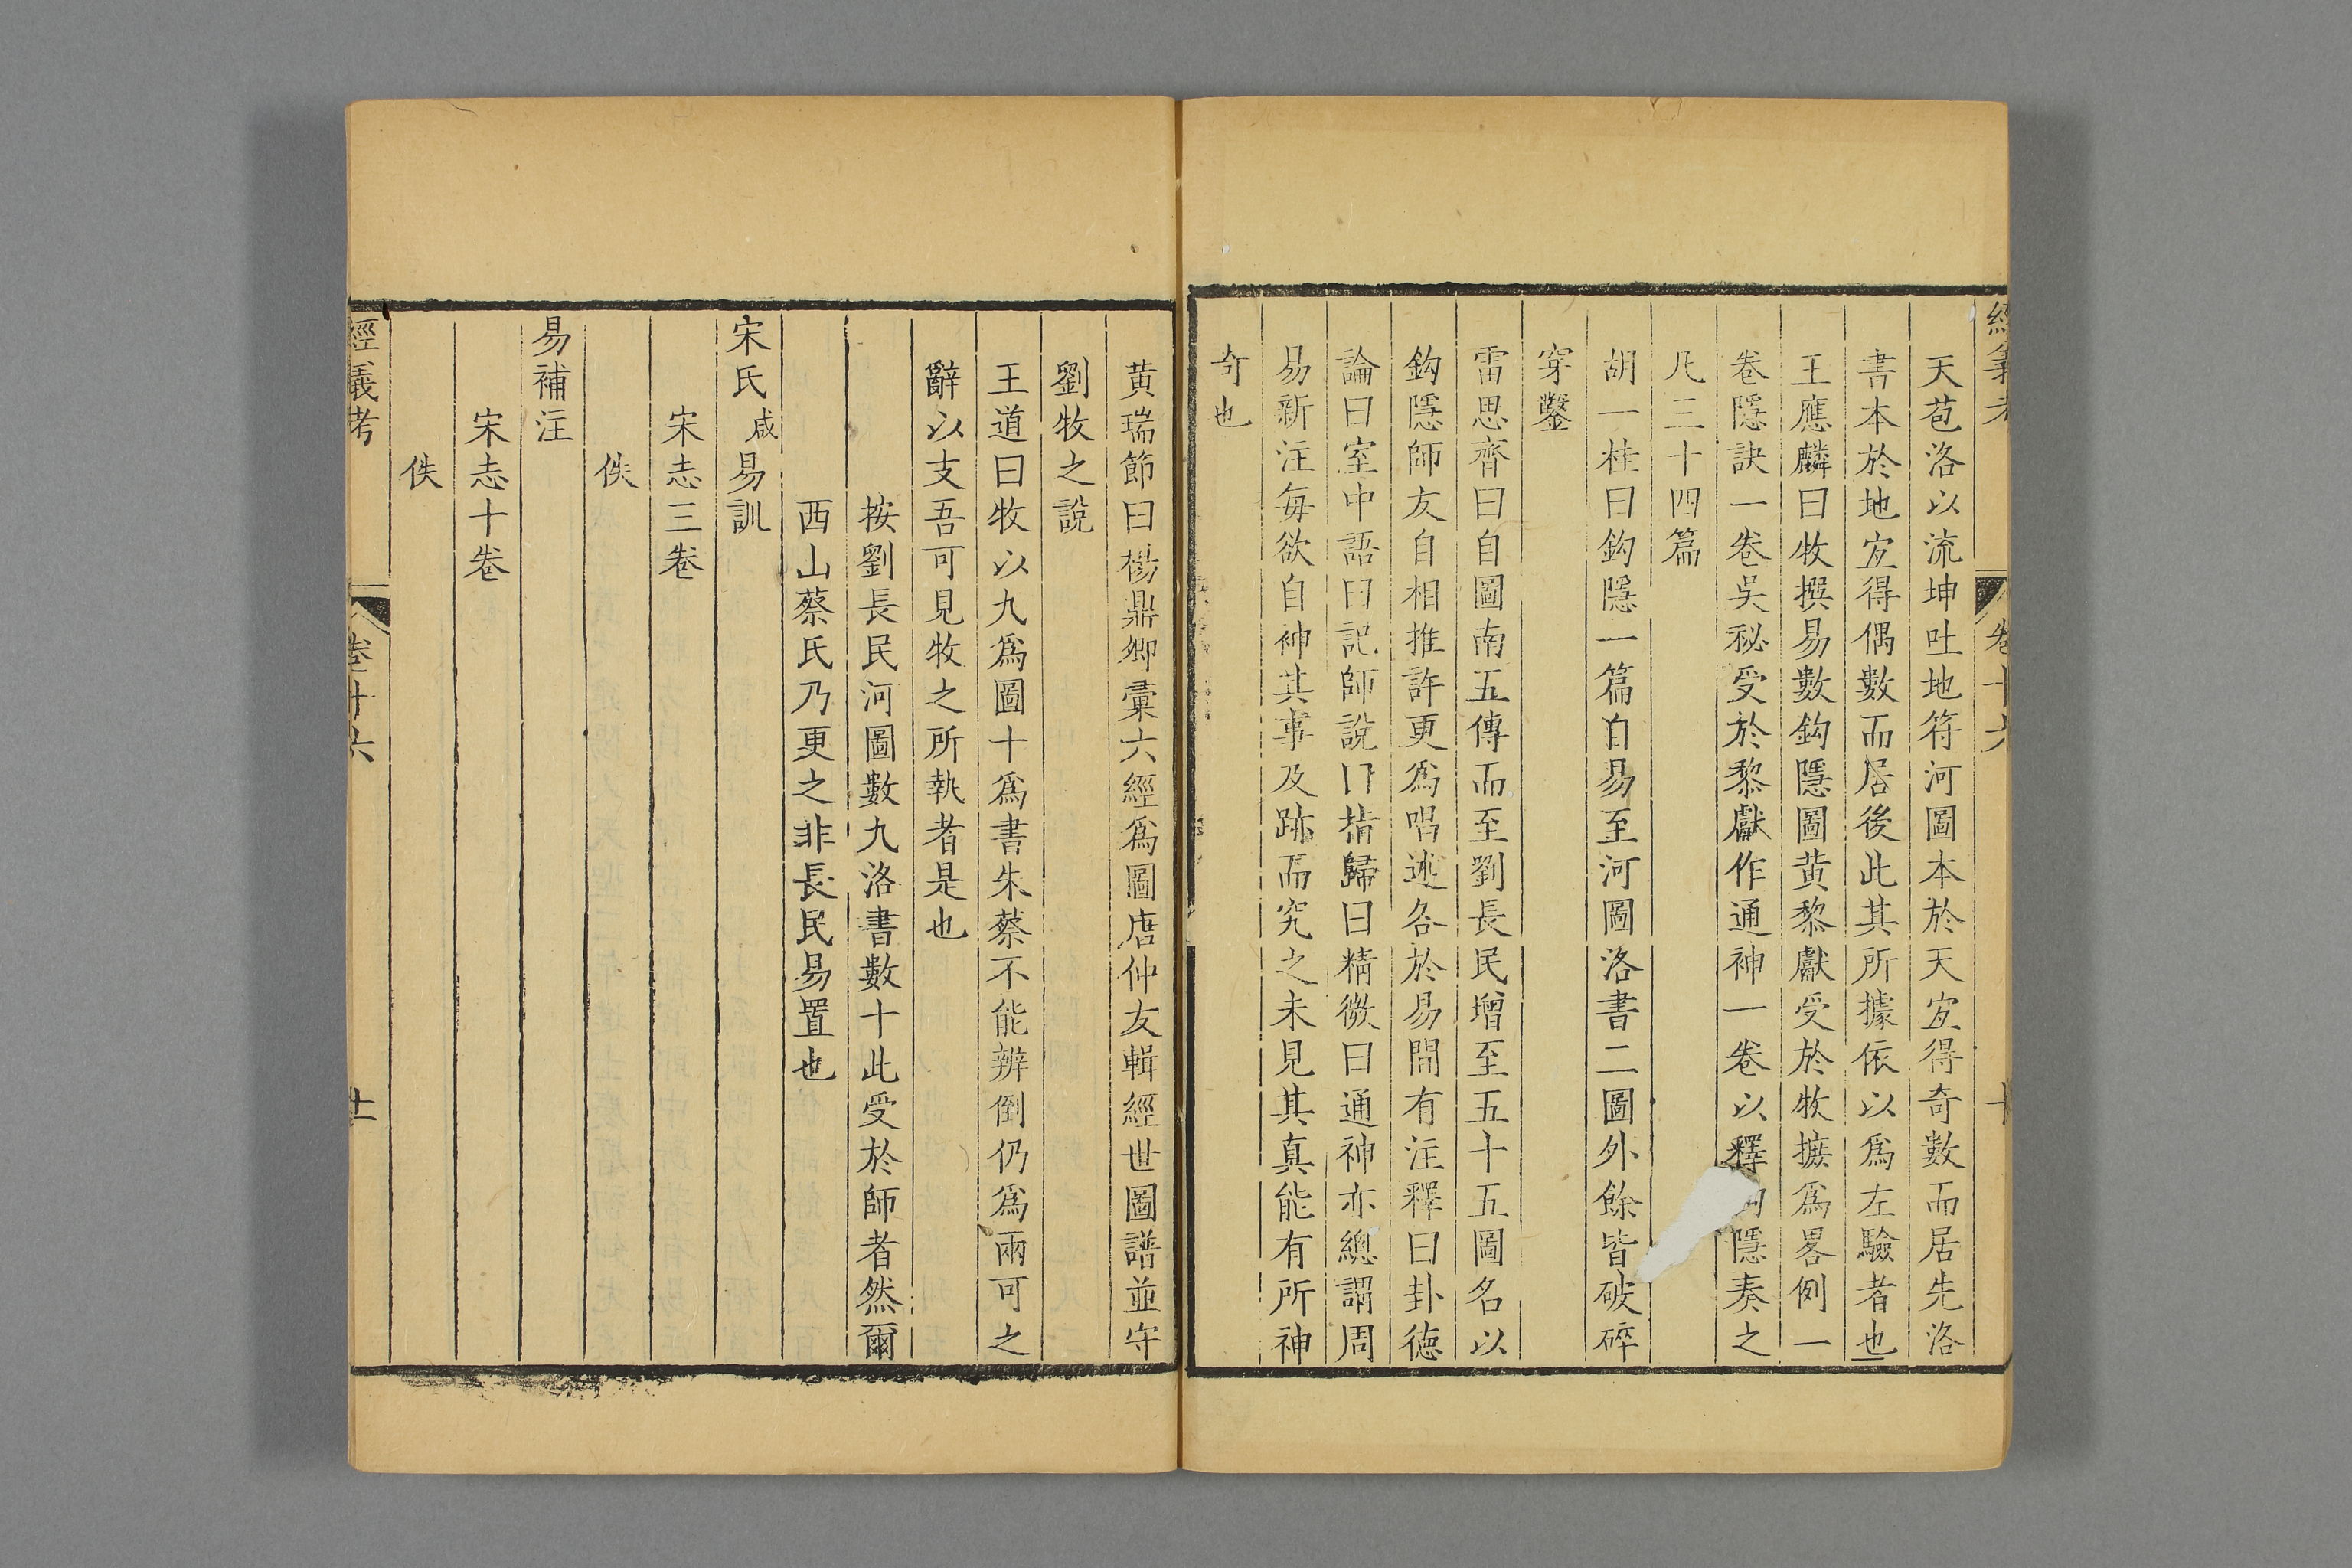 天苞洛以流坤吐地符河圖本於天宐得奇數而居先洛
書本於地宐得偶數而居後此其所據依以爲左驗者也
王應麟曰牧撰易數鈎隱圖黄黎獻受於牧摭爲畧例一
卷隱訣一卷吴秘受於黎獻作通神一卷以釋隱奏之
凡三十四篇
胡一桂曰鈎隱一篇自易至河圖洛書二圖外餘皆破碎
穿鑿
雷思齊曰自圖南五傳而至劉長民增至五十五圖名以
鈎隱師友自相推許更爲唱述各於易間有注釋曰卦德
論曰室中語曰記師說曰指歸曰精微曰通神亦總謂周
易新注每欲自神其事及跡而究之未見其真能有所神
奇也
黄瑞節曰楊鼎卿彚六經爲圖唐仲友輯經世圖譜並守
劉牧之說
王道曰牧以九爲圖十爲書朱蔡不能辨倒仍爲兩可之
辭以支吾可見牧之所執者是也
按劉長民河圖數九洛書數十此受於師者然爾
西山蔡氏乃更之非長民易置也
宋氏咸易訓
宋志三卷
佚
易補注
宋志十卷
佚
經義考 卷十六 十一